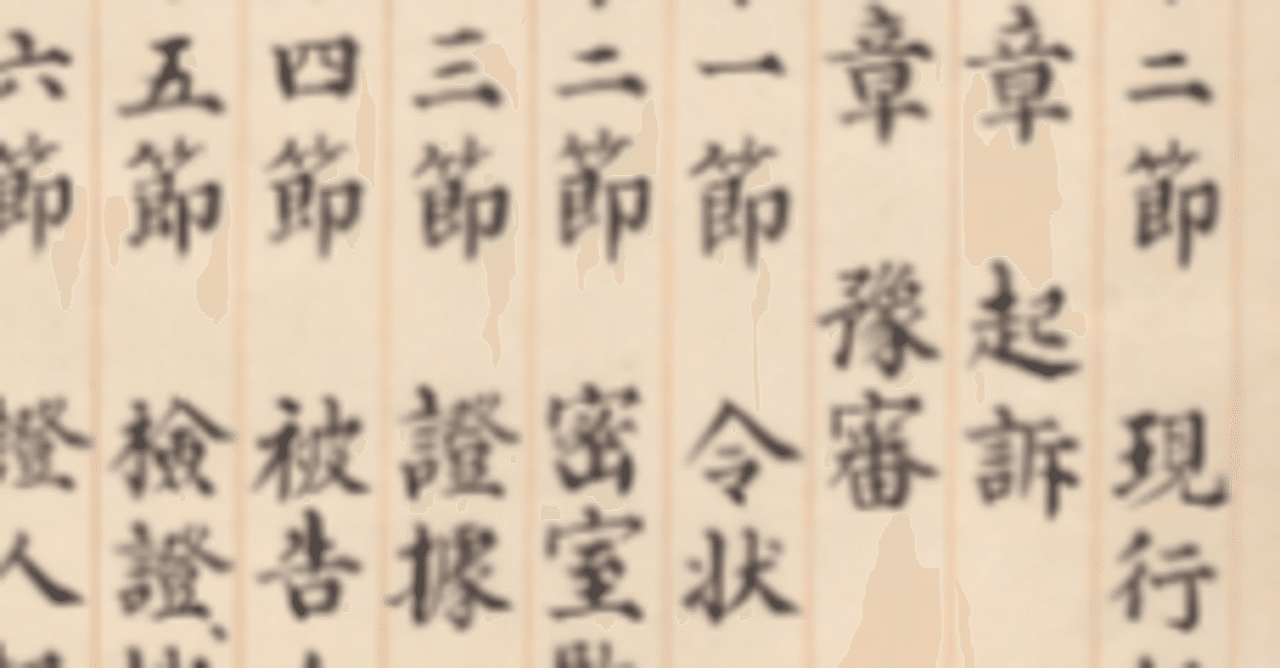 二節 現行
章 起訴
章 豫審
一節 令状
二節 密室
三節 證據
四節 被告
五節 檢證、
六節 證人